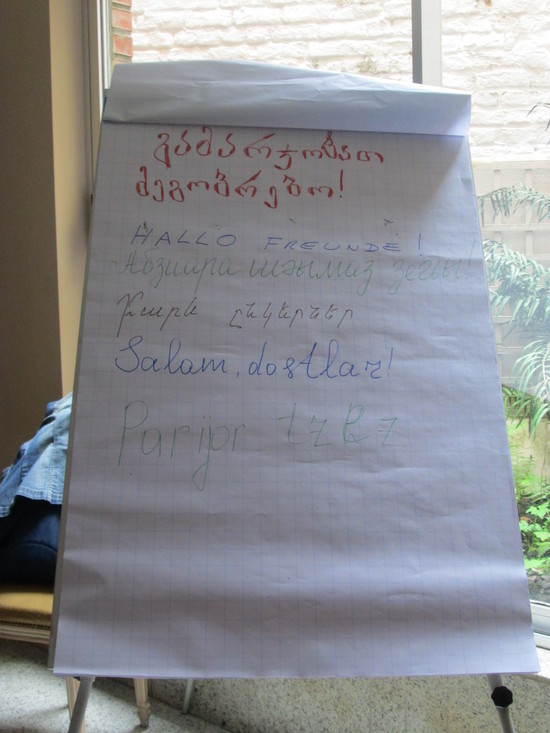 გამარჯობათ
მეგობრებო!
HALLO FREUNDE!
Абзиара шәымаз зегьы!
Բարև ընկերներ
Salam, dostlar!
Parijor